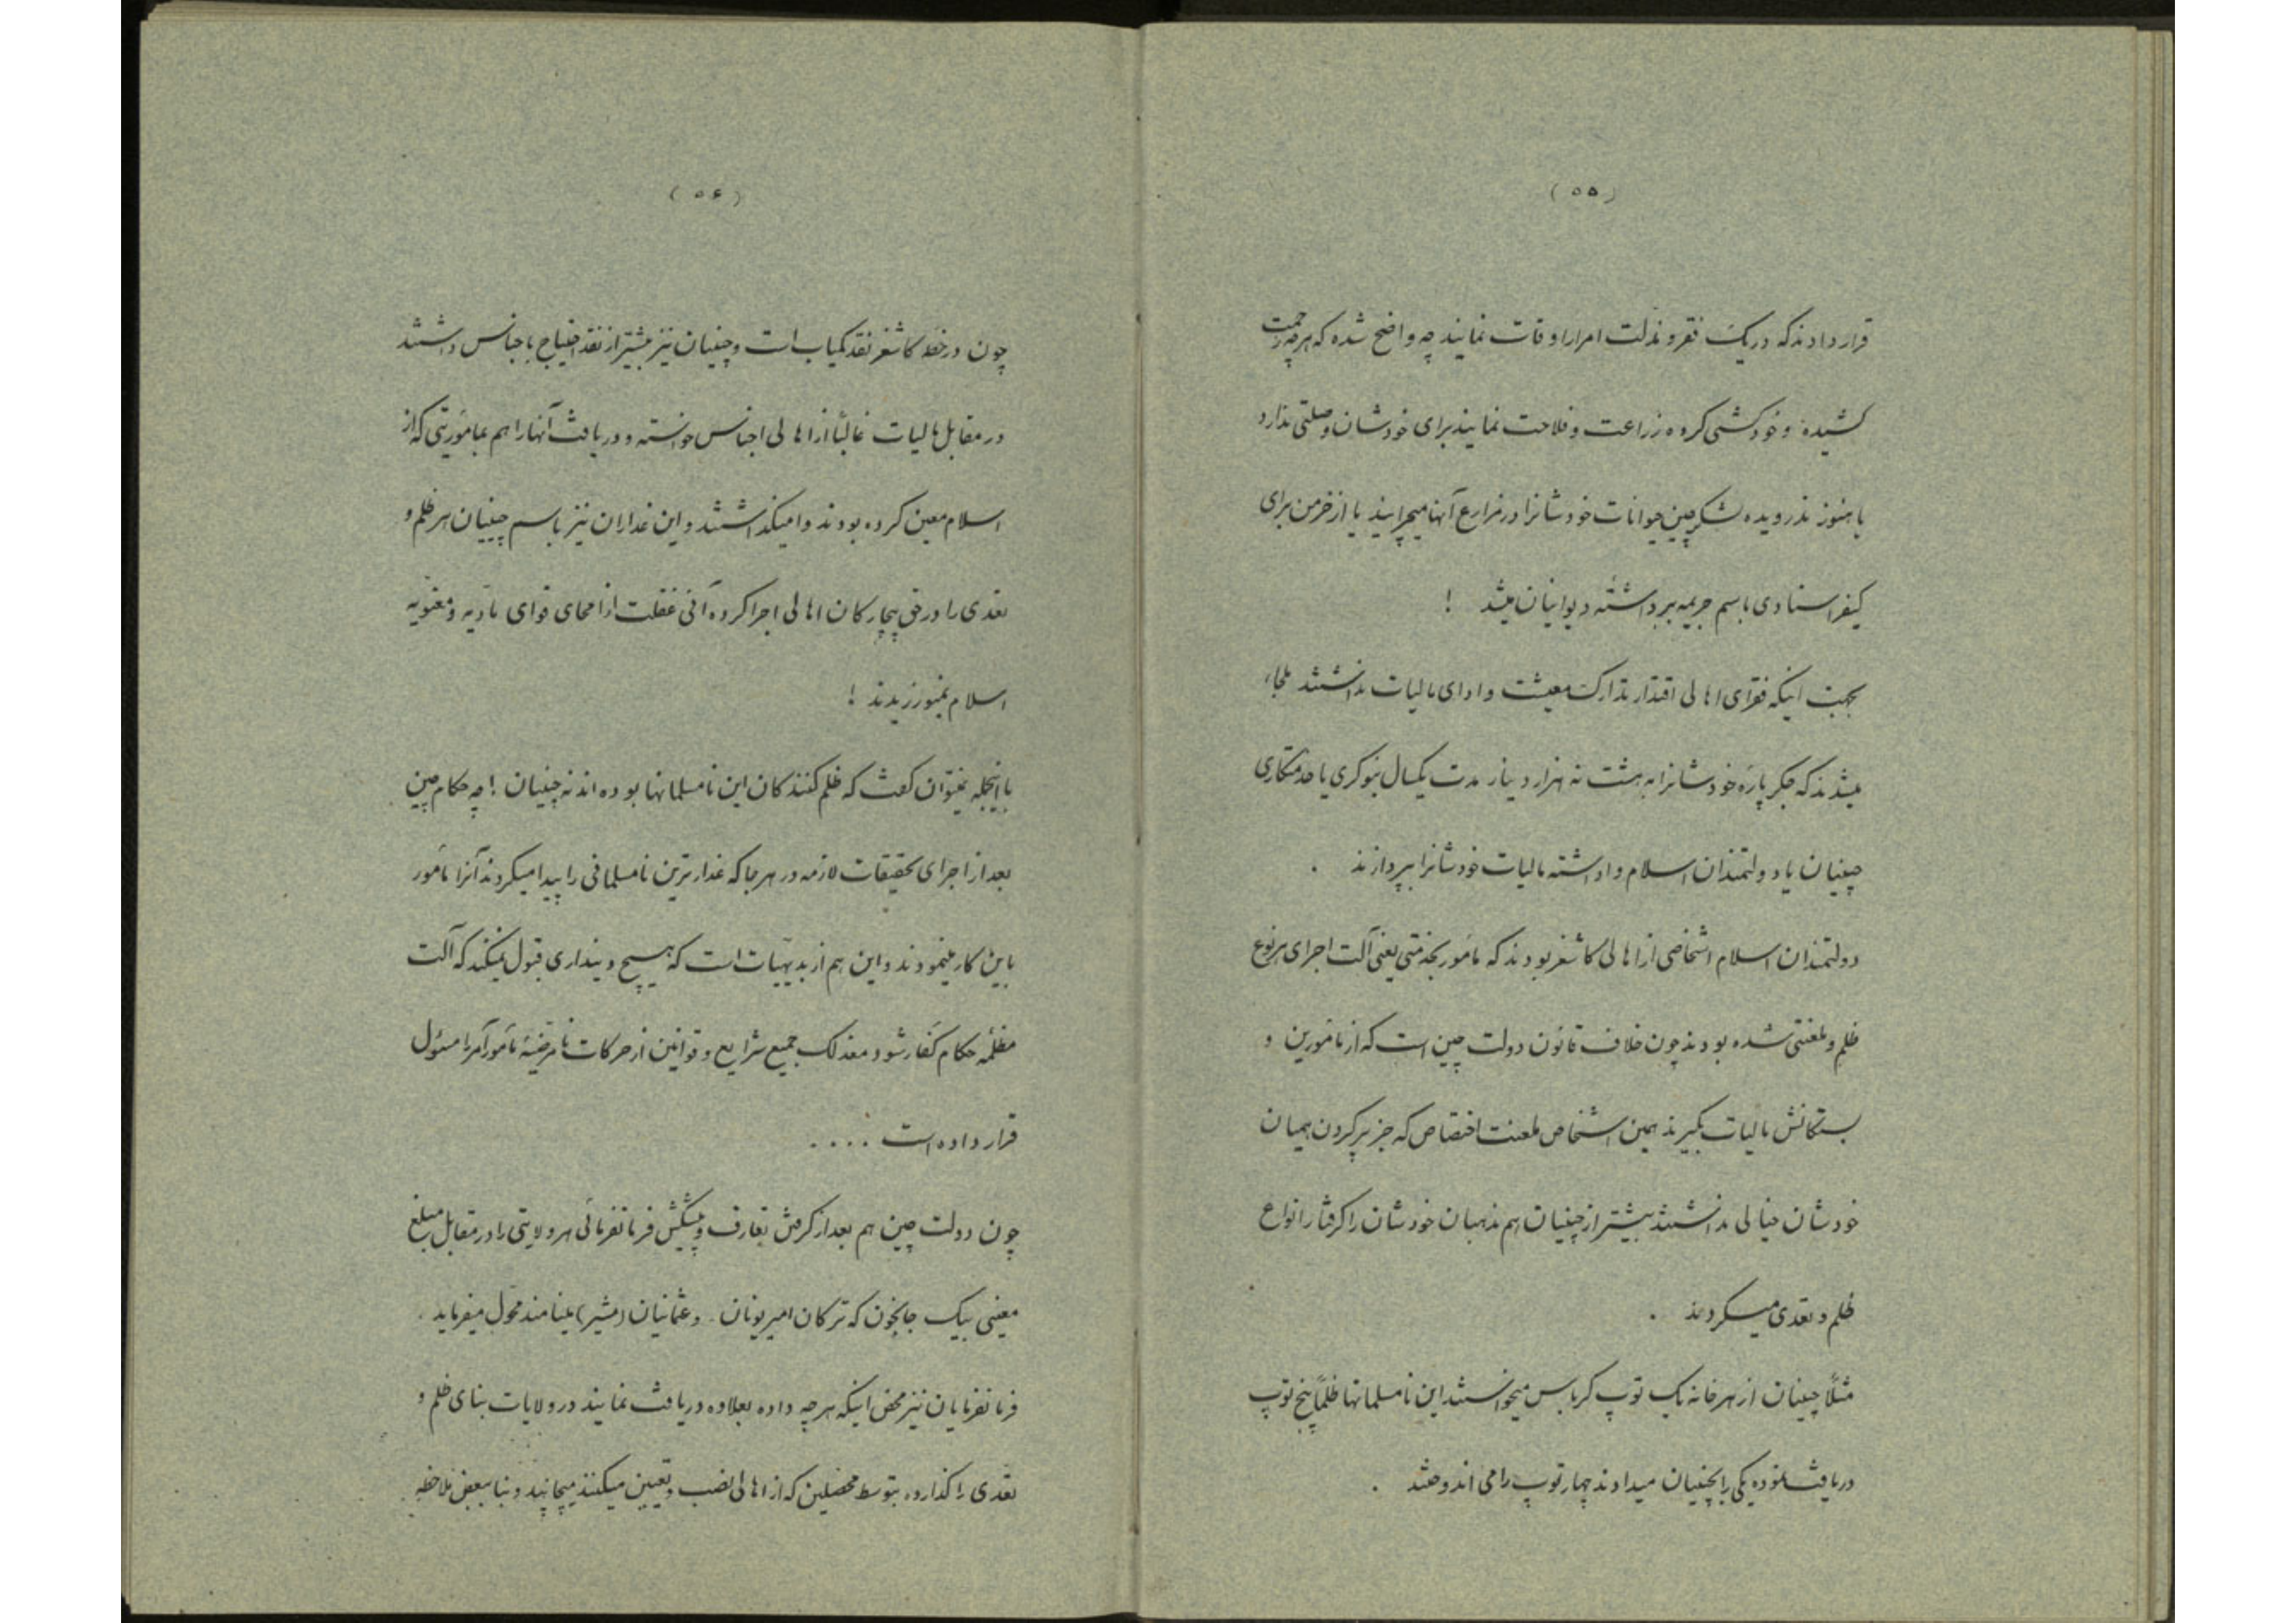 (۵۵)
قرار دادند که در یک فقر و مذلت امرار اوقات نمایند چه واضح شده که هر چه زحمت
کشیده و خودکشی کرده زراعت و فلاحت نمایند برای خودشان وصلتی ندارد
یا هنوز ندرویده لشکر چین حیوانات خودشانرا در مزارع آنها میچرانید یا از خرمن برای
کیفر استادی باسم جریمه برداشته دیوانیان میشد !
بجهت اینکه فقرای اهالی اقتدار تدارک معیشت و ادای مالیات نداشتند ملجاء
میشدند که جگر پاره خودشانرا به هشت نه هزار دینار مدت یکسال بنوکری یا خدمتکاری
چینیان یا دولتمندان اسلام واداشته مالیات خودشانرا بپردازند .
دولتمندان اسلام اشخاصی از اهالی کاشغر بودند که مأمور بخدمتی یعنی آلت اجرای هر نوع
ظلم و لعنتی شده بودند چون خلاف قانون دولت چین است که از مأمورین و
بستگانش مالیات بگیرند همین اشخاص لعنت اختصاص که جز پر کردن همیان
خودشان خیالی نداشتند بیشتر از چینیان هم مذهبان خودشان را گرفتار انواع
ظلم و تعدی میکردند .
مثلاً چینیان از هر خانه یک توپ کرباس میخواستند این نامسلمانها ظلماً پنج توپ
دریافت نموده یکی را بچینیان میدادند چهار توپ را می اندوختند .
(۵۶)
چون در خطه کاشغر نقد کمیاب است و چینیان نیز بیشتر از نقد احتیاج باجناس داشتند
در مقابل مالیات غالباً از اهالی اجناس خواسته و دریافت آنها را هم بمأمورینی که از
اسلام معین کرده بودند وامیگذاشتند و این غداران نیز باسم چینیان هر ظلم و
تعدی را در حق بیچارگان اهالی اجرا کرده آنی غفلت از امحای قوای مادیه و معنویه
اسلام نمیورزیدند !
با اینجمله نمیتوان گفت که ظلم کنندگان این نامسلمانها بوده اند نه چینیان ! چه حکام چین
بعد از اجرای تحقیقات لازمه در هر جا که غدار ترین نامسلمانی را پیدا میکردند آنرا مأمور
باین کار مینمودند و این هم از بدیهیات است که هیچ دینداری قبول نمیکند که آلت
مظلمه حکام کفار شود معذلک جمیع شرایع و قوانین از حرکات نامرضیه مأمور آمر را مسئول
قرار داده است ....
چون دولت چین هم بعد از گرفتن تعارف و پیشکش فرمانفرمائی هر ولایتی را در مقابل مبلغ
معینی بیک جانجون که ترکان امیر یونان . و عثمانیان (مشیر) مینامند محول میفرماید .
فرمانفرمایان نیز محض اینکه هر چه داده بعلاوه دریافت نمایند در ولایات بنای ظلم و
تعدی را گذارده بتوسط محصلین که از اهالی نصب و تعیین میکنند میچاپید و بنا ببعض ملاحظه